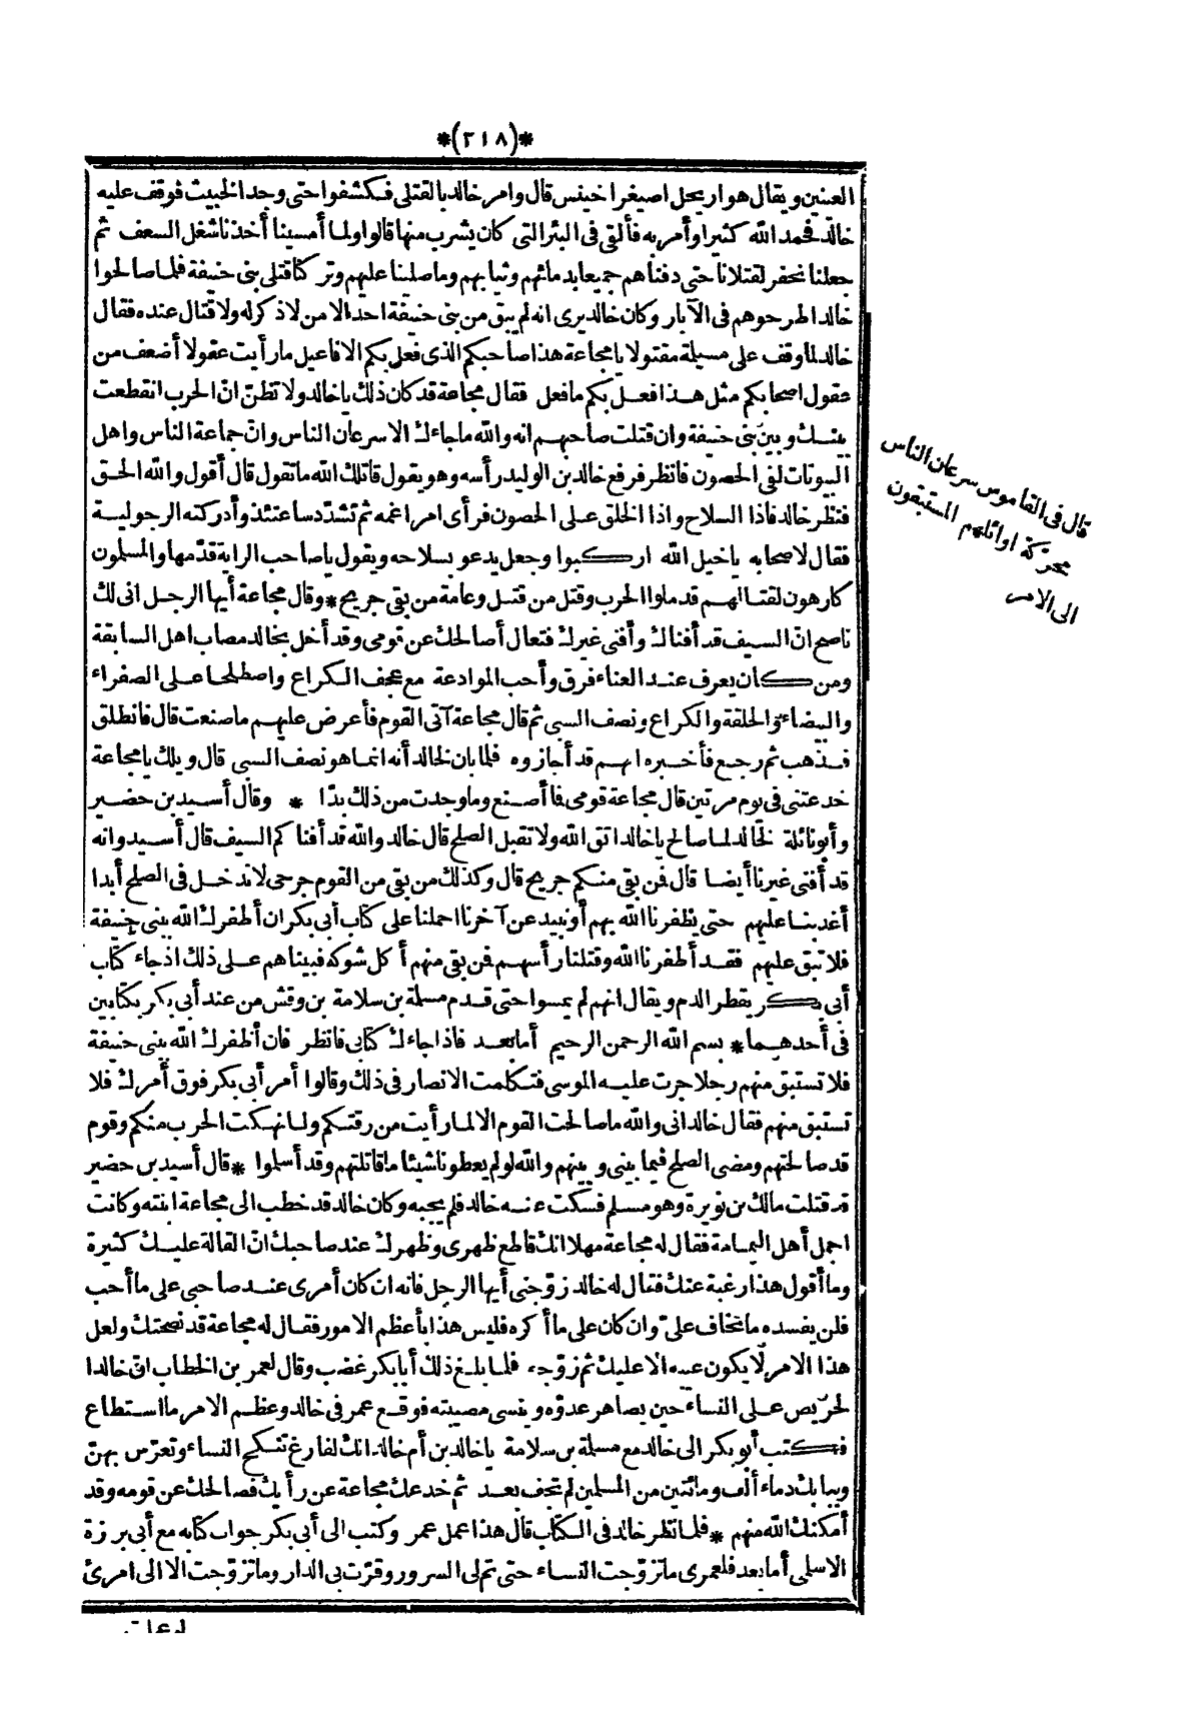 *(٢١٨)*
العينين ويقال هو اريحل اصيغر اخينس قال وامر خالد بالقتلى فكشفوا حتى وجد الخبيث فوقف عليه
خالد فحمد الله كثيرا وأمر به فألقى فى البئر التى كان يشرب منها قالوا ولما أمسينا أخذنا شغل السعف ثم
جعلنا نحفر لقتلانا حتى دفناهم جميعا بدمائهم وثيابهم وما صلينا عليهم وتركنا قتلى بنى حنيفة فلما صالحوا
خالدا طرحوهم فى الآبار وكان خالد يرى انه لم يبق من بنى حنيفة احد الا من لا ذكر له ولا قتال عنده فقال
خالد لما وقف على مسيلة مقتولا يا مجاعة هذا صاحبكم الذى فعل بكم الافاعيل ما رأيت عقولا أضعف من
عقول اصحابكم مثل هذا فعل بكم ما فعل فقال مجاعة قد كان ذلك يا خالد ولا تظنّ انّ الحرب انقطعت
بينك وبين بنى حنيفة وان قتلت صاحبهم انه والله ما جاءك الا سرعان الناس وانّ جماعة الناس واهل
البيوتات لفى الحصون فانظر فرفع خالد بن الوليد رأسه وهو يقول قاتلك الله ما تقول قال أقول والله الحق
فنظر خالد فاذا السلاح واذا الخلق على الحصون فرأى امرا غمه ثم تشدّد ساعتئذ وأدركته الرجولية
فقال لاصحابه يا خيل الله اركبوا وجعل يدعو بسلاحه ويقول يا صاحب الراية قدّمها والمسلمون
كارهون لقتالهم قد ملوا الحرب وقتل من قتل وعامة من بقى جريح * وقال مجاعة أيها الرجل انى لك
ناصح انّ السيف قد أفناك وأفنى غيرك فتعال أصالحك عن قومى وقد أخل بخالد مصاب اهل السابقة
ومن كان يعرف عنده الغناء فرق وأحب الموادعة مع عجف الكراع واصطلحا على الصفراء
والبيضاء والحلقة والكراع ونصف السبى ثم قال مجاعة آتى القوم فأعرض عليهم ما صنعت قال فانطلق
فذهب ثم رجع فأخبره انهم قد أجازوه فلما بان لخالد أنه انما هو نصف السبى قال ويلك يا مجاعة
خدعتنى فى يوم مرتين قال مجاعة قومى فا أصنع وما وجدت من ذلك بدّا * وقال أسيد بن حضير
وأبو نائلة لخالد لما صالح يا خالد اتق الله ولا تقبل الصلح قال خالد والله قد أفناكم السيف قال أسيد وانه
قد أفنى غيرنا أيضا قال فمن بقى منكم جريح قال وكذلك من بقى من القوم جرحى لا ندخل فى الصلح أبدا
أغد بنا عليهم حتى يظفرنا الله بهم أو نبيد عن آخرنا احملنا على كتاب أبى بكر ان أظفرك الله ببنى حنيفة
فلا تبق عليهم فقد أظفرنا الله وقتلنا رأسهم فمن بقى منهم أكل شوكة فبيناهم على ذلك اذ جاء كتاب
أبى بكر يقطر الدم ويقال انهم لم يمسوا حتى قدم مسلمة بن سلامة بن وقش من عند أبى بكر بكتابين
فى أحدهما * بسم الله الرحمن الرحيم أما بعد فاذا جاءك كتابى فانظر فان أظفرك الله ببنى حنيفة
فلا تستبق منهم رجلا جرت عليه الموسى فتكلمت الانصار فى ذلك وقالوا أمر أبى بكر فوق أمرك فلا
تستبق منهم فقال خالد انى والله ما صالحت القوم الا لما رأيت من رقتكم ولما نهكت الحرب منكم وقوم
قد صالحتهم ومضى الصلح فيما بينى وبينهم والله لو لم يعطونا شيئا ما قاتلتهم وقد أسلموا * قال أسيد بن حضير
قد قتلت مالك بن نويرة وهو مسلم فسكت عنه خالد فلم يجبه وكان خالد قد خطب الى مجاعة ابنته وكانت
اجمل أهل اليمامة فقال له مجاعة مهلا انك قاطع ظهرى وظهرك عند صاحبك انّ القالة عليك كثيرة
وما أقول هذا رغبة عنك فقال له خالد زوّجنى أيها الرجل فانه ان كان أمرى عند صاحبى على ما أحب
فلن يفسده ما تخاف علىّ وان كان على ما أكره فليس هذا بأعظم الامور فقال له مجاعة قد نصحتك ولعل
هذا الامر لا يكون عيبه الا عليك ثم زوّجه فلما بلغ ذلك أبا بكر غضب وقال لعمر بن الخطاب انّ خالدا
لحريص على النساء حين يصاهر عدوّه وينسى مصيبته فوقع عمر فى خالد وعظم الامر ما استطاع
فكتب أبو بكر الى خالد مع مسلمة بن سلامة يا خالد بن أم خالد انك لفارغ تنكح النساء وتعرّس بهنّ
وببابك دماء ألف ومائتين من المسلمين لم تجف بعد ثم خدعك مجاعة عن رأيك فصالحك عن قومه وقد
أمكنك الله منهم * فلما نظر خالد فى الكتاب قال هذا عمل عمر وكتب الى أبى بكر جواب كتابه مع أبى برزة
الاسلمى أما بعد فلعمرى ما تزوّجت النساء حتى تم لى السرور وقرّت بى الدار وما تزوّجت الا الى امرئ
قال فى القاموس سرعان الناس
محرّكة اوائلهم المستبقون
الى الامر